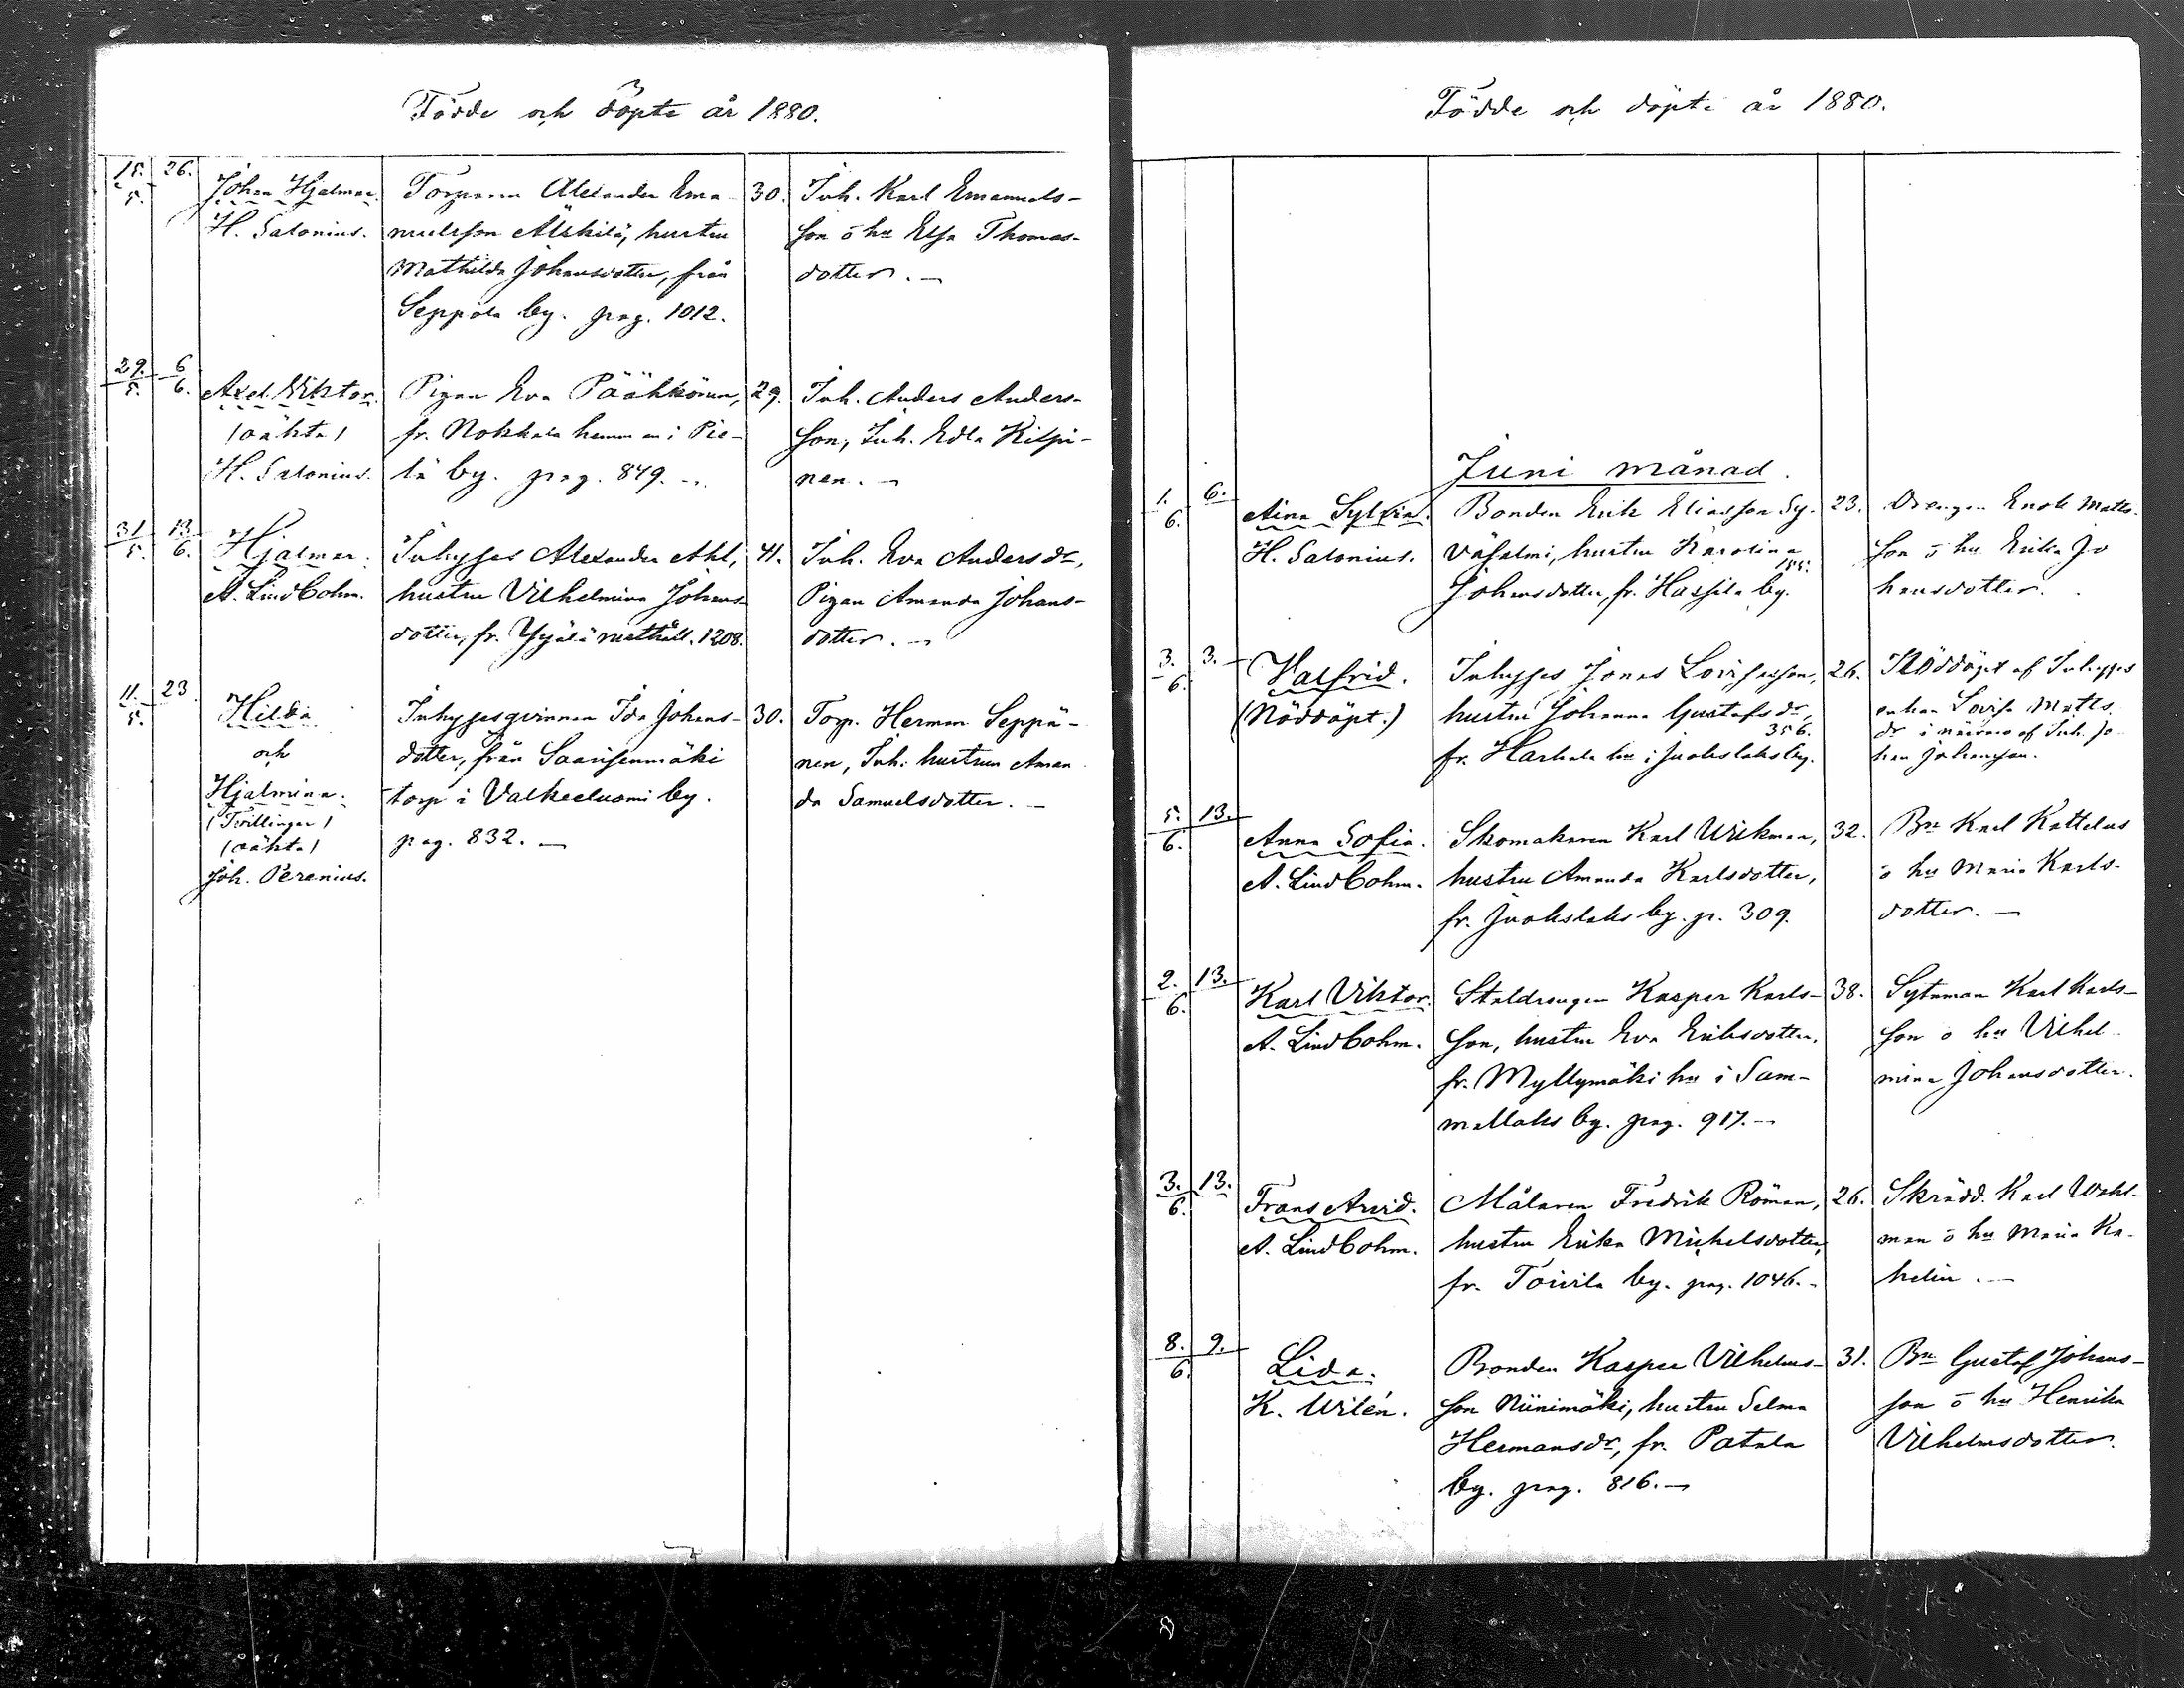 Födde och döpte år 1880.
15. 26.
5.
Johan Hjalmar.
H. Salonius.
Torparen Alexander Ema-
nuelsson Alskilä, hustru
Mathilda Johansdotter, från
Seppälä by. pag. 1012.
30.
Inh. Karl Emanuels-
son o hu Elsa Thomas-
dotter. —
29. 6
5. 6.
Axel Viktor.
(oäkta)
H. Salonius.
Pigan Eva Pääkkönen,
fr. Nokkala hemman i Pie-
lä by. pag. 849. —
29.
Inh. Anders Anders-
son, Inh. Edla Kilpi-
nen. —
31 13
5. 6.
Hjalmar.
A. Lindbohm.
Inhyses Alexander Ahl,
hustru Vilhelmina Johans-
dotter, fr. 1208.
41.
Inh. Eva Andersdr,
Pigan Amanda Johans-
dotter. —
11. 23
5.
Hilda
och
Hjalmina.
(Tvillingar)
(oäkta)
Joh. Perenius.
Inhysesqvinnan Ida Johans-
dotter, från Saarisenmäki
torp i Valkeeluomi by.
pag. 832. —
30.
Torp. Herman Seppä-
nen, Inh. hustrun Aman
da Samuelsdotter. —
Födde och döpte år 1880.
Juni månad.
1. 6.
6.
Aina Sylvia.
H. Salonius.
Bonden Erik Eliasson Sy-
väsalmi, hustru Karolina
155.
Johansdotter, fr. Hassila by.
23.
Drengen Enok Matts-
son o hu Erika Jo
hansdotter.
3. 3.
6.
Valfrid.
(Nöddöpt.)
Inhyses Jonas Lovisasson,
hustru Johanna Gustafsdr,
356.
fr. Harkala hn i Juokslaks by.
26.
Nöddöpt af Inhyses
enkan Lovisa Matts
dr i närvaro af Inh. Jo-
han Johansson.
5. 13.
6.
Anna Sofia.
A. Lindbohm.
Skomakaren Karl Wikman,
hustru Amanda Karlsdotter,
fr. Juokslaks by. p. 309.
32.
Bn Karl Kattelus
o hu Maria Karls-
dotter. —
2. 13.
6.
Karl Viktor.
A. Lindbohm.
Staldrengen Kasper Karls-
son, hustru Eva Eriksdotter,
fr. Myllymäki hn i Sam-
mallaks by. pag. 917. —
38.
Sytnman Karl Karls-
son o hu Vilhel-
mina Johansdotter.
3. 13.
6.
Frans Arvid.
A. Lindbohm.
Målaren Fredrik Röman,
hustru Erika Mickelsdotter,
fr. Toivila by. pag. 1046. -
26.
Skrädd. Karl Wahl-
man o hu Maria Ka-
helin. —
8. 9.
6.
Lida.
K. Wilén.
Bonden Kasper Vilhelms-
son Niinimäki, hustru Selma
Hermansdr, fr. Patala
by. pag. 816. —
31.
Bn Gustaf Johans-
son o hu Henrika
Vilhelmsdotter.